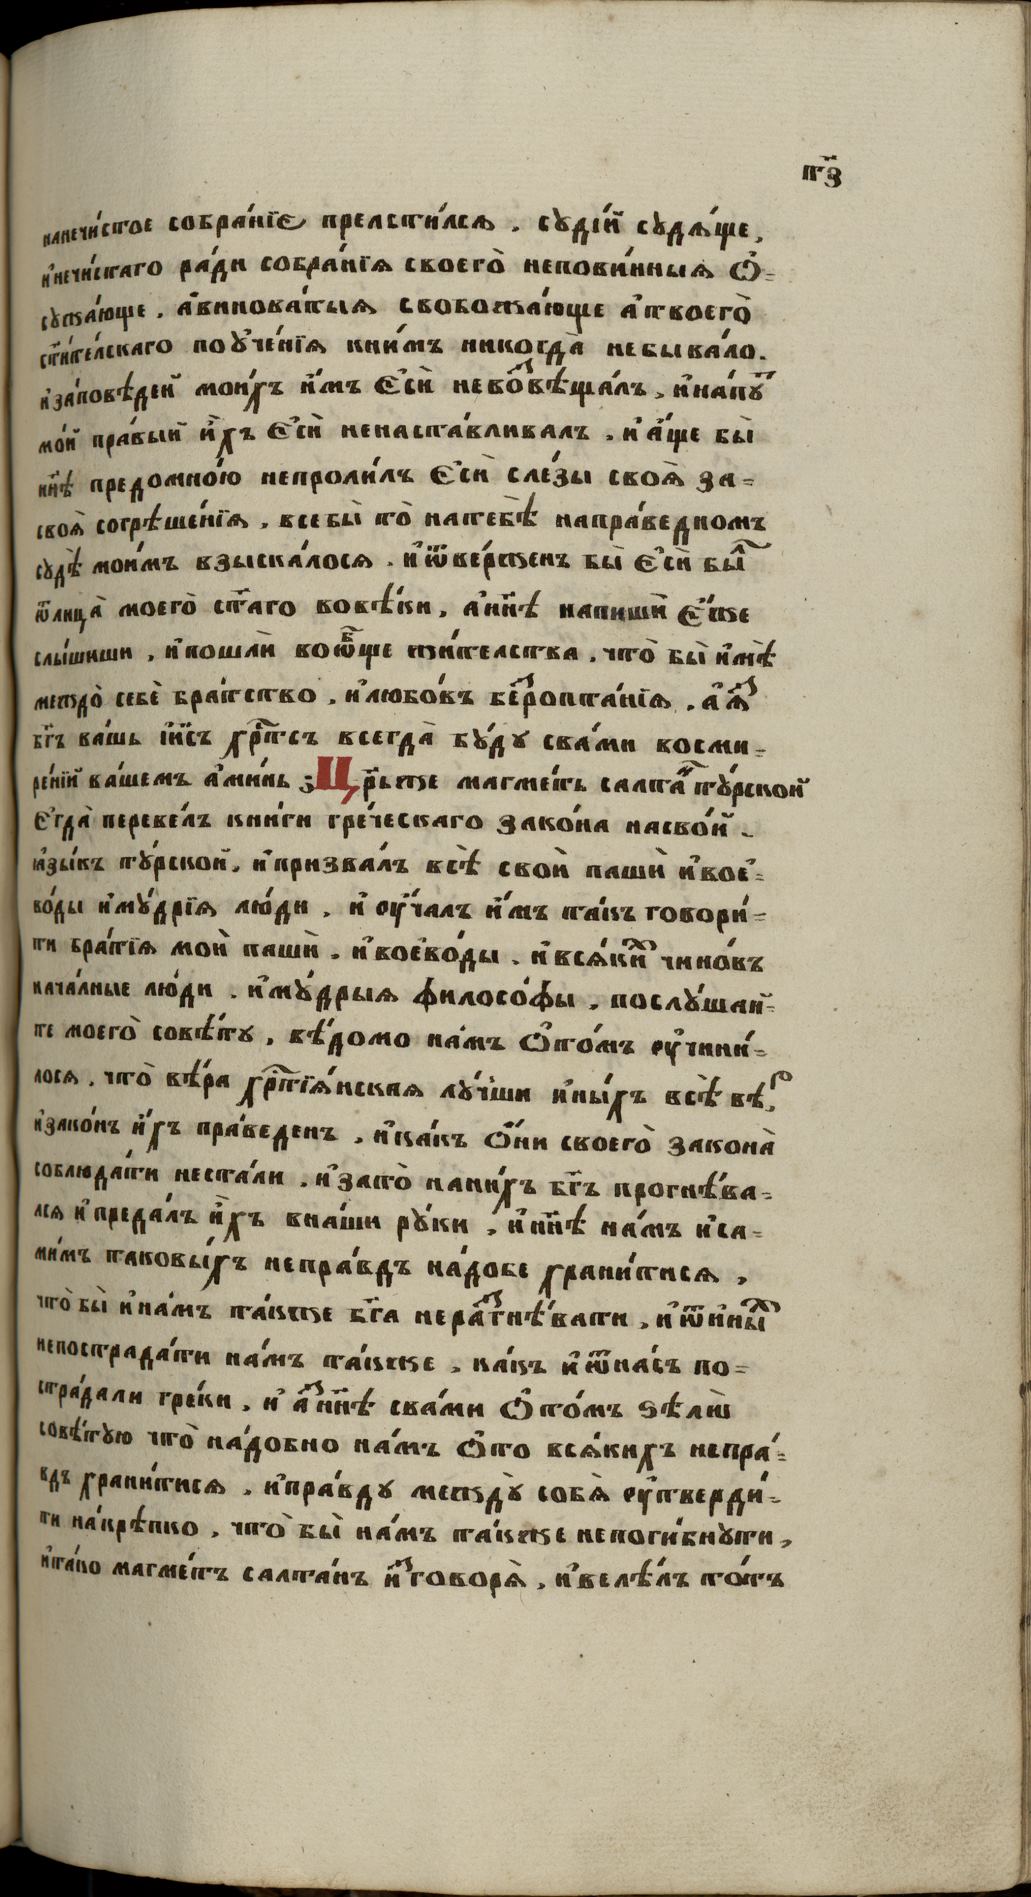 п҃з
нанечи́стое собра́нїе прелсти́лся . сꙋді́й сꙋдѧ́ще,
и҆нечи́стаго ра́ди собра́нїѧ своего̀ непови́нныѧ ѡ҆=
сꙋжа́юще . а҆винова́тыѧ свобожа́юще а҆твоего̀
ст҃и́телскаго поꙋче́нїѧ кни́мъ никогда̀ небыва́ло .
и҆за́повѣдей мои́хъ и҆́мъ є҆сѝ нево́звѣща́лъ , и҆напꙋ́т
мо́й пра́вый и҆̀хъ є҆сѝ ненаста́вливалъ . и҆ а҆́ще бы̀
нн҃ѣ предомно́ю непроли́лъ є҆сѝ сле́зы своѧ̀ за=
своѧ̀ согрѣше́нїѧ , всебы̀ то̀ натебѣ̀ напра́ведномъ
сꙋдѣ̀ мои́мъ взыска́лосѧ . и҆ѿве́рженъ бы̀ є҆сѝ бы́л
ѿлица̀ моего̀ ст҃а́го вовѣ́ки , а҆нн҃ѣ напишѝ є҆́же
слы́шиши , и҆пошлѝ воѻ́бще жи́телства . что̀ бы̀ и҆мѣ́
междо̀ себѐ бра́тство , и҆любо́въ безропта́нїѧ . а҆́з
бг҃ъ ва́шь іи҃съ хр҃то́съ всегда̀ бꙋ́дꙋ сва́ми восми=
ре́нїй ва́шемъ а҆ми́нь ; Цр҃ьже магме́тъ салта́н тꙋ́рской
є҆гда̀ переве́лъ кни́ги гре́ческаго зако́на насво́й
ꙗ҆зы́къ тꙋ́рской . и҆призва́лъ всѣ̀ своѝ пашѝ и҆вое҆=
во́ды и҆мꙋ́дрїѧ лю́ди . и҆ ᲂу҆ча́лъ и҆́мъ та́къ говори́=
ти бра́тїѧ моѝ пашѝ . и҆воево́ды . и҆всѧ́ких чино́въ
нача́лные лю́ди . и҆мꙋ́дрыѧ филосо́фы . послꙋ́шай=
те моего̀ совѣ́тꙋ , вѣ́домо на́мъ ѡ҆то́мъ ᲂу҆чини́=
лосѧ . что̀ вѣ́ра хр҃тїѧ́нская лꙋ́чши и҆ны́хъ всѣ̀ вѣ́р
и҆зако́нъ и҆́хъ пра́веденъ . и҆ка́къ ѻ҆́ни своего̀ закона̀
соблюда́ти неста́ли . и҆зато̀ нани́хъ бг҃ъ прогнѣ́ва=
лсѧ и҆преда́лъ и҆̀хъ вна́ши рꙋ́ки , и҆нн҃ѣ на́мъ и҆са=
ми́мъ таковы́хъ непра́вдъ на́добе храни́тисѧ ,
что̀ бы̀ и҆на́мъ та́кже бг҃а нера́згнѣ́вати , и҆ѿи҆ны́х
непострада́ти на́мъ та́кже , ка́къ и҆ѿна́съ по=
страда́ли гре́ки . и҆ а҆́з нн҃ѣ сва́ми ѡ҆то́мъ ѕѣлѡ̀
совѣ́тꙋю что̀ на́добно на́мъ ѡ҆то всѧ́кихъ непра́=
вдъ храни́тисѧ . и҆пра́вдꙋ междꙋ̀ собѧ̀ ᲂу҆тверди́=
ти на́крѣпко . что̀ бы̀ на́мъ та́кже непоги́бнꙋти ,
и҆та́ко магме́тъ салта́нъ и҆зговорѧ̀ . и҆велѣ́лъ то́тъ